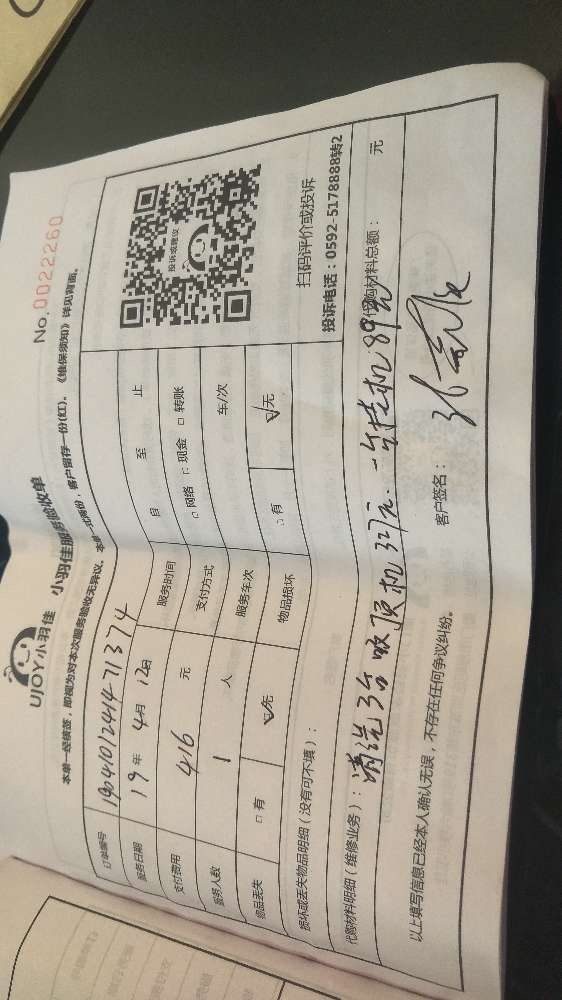 No.0022260
UJOY小羽佳 小羽佳服务验收单
本单一经核签，即视为对本次服务验收无异议。本单一式两份，客户留存一份(红)。《维保须知》详见背面。
订单编号 1904101241471374
服务日期 19 年 4 月 12 日 服务时间 自 至 止
支付费用 416 元 支付方式 □ 网络 □ 现金 □ 转账
服务人数 1 人 服务车次 车/次
物品丢失 □ 有 ☑ 无 物品损坏 □ 有 ☑ 无
投诉或建议
扫码评价或投诉
投诉电话：0592-5178888转2
损坏或丢失物品明细（没有可不填）：
代购材料明细（维修业务）： 清洗3台吸顶机327元.一台挂机89元 代购材料总额： 元
以上填写信息已经本人确认无误，不存在任何争议纠纷。 客户签名：